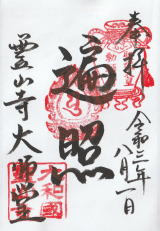 奉拝
令和三年
八月一日
遍照
霊山寺大師堂
大和國